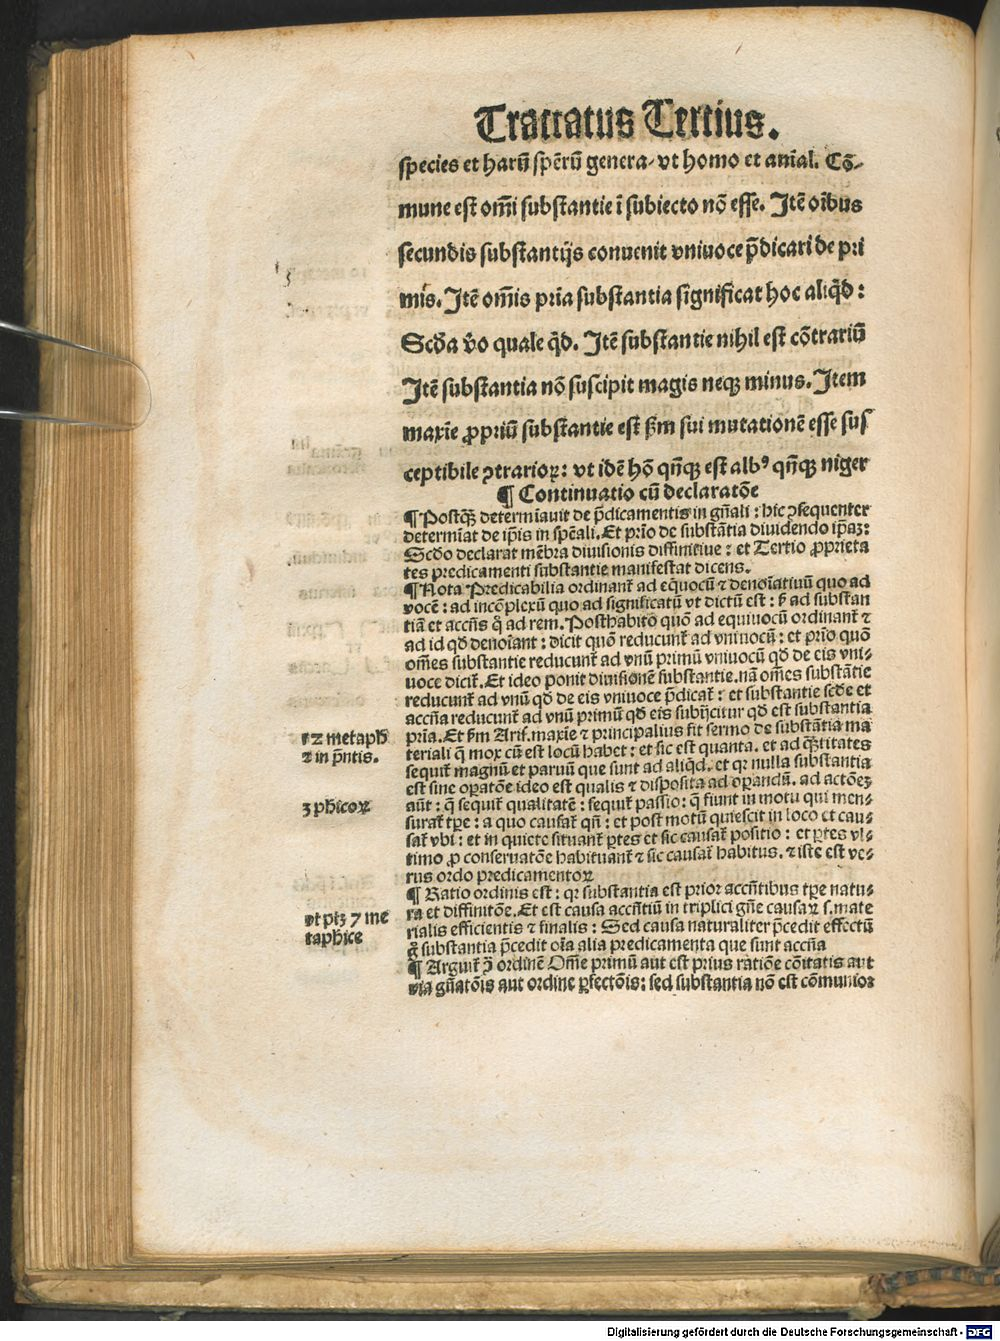 Tractatus Tertius.
species et harū spērū genera, vt homo et aniāl. Cō-
mune est omni substantie ī subiecto nō esse. Itē oībus
secundis substantijs conuenit vniuoce p̄dicari de pri
mis. Itē omnis prīa substantia significat hoc aliqd̄:
Scd̄a v̄o quale qd̄. Itē substantie nihil est cōtrariū
Itē substantia nō suscipit magis neqꝫ minus. Item
maxīe ꝓpriū substantie est ẜm sui mutationē esse sus
ceptibile ꝯtrarioꝝ: vt idē hō qn̄qꝫ est albꝰ qn̄qꝫ niger
¶ Continuatio cū declaratōe
¶ Postqꝫ̄ determīauit de p̄dicamentis in gn̄ali: hic ꝯsequenter
determīat de ip̄is in spēali. Et prīo de substātia diuidendo ip̄aꝫ:
Scd̄o declarat mēbra diuisionis diffinitiue: et Tertio ꝓprieta
tes predicamenti substantie manifestat dicens.
¶ Nota Predicabilia ordinant̄ ad equocū ⁊ denoīatiuū quo ad
vocē: ad incōplexū quo ad significatū vt dictū est: ẜ ad substan
tiā et accn̄s q̄ ad rem. Posthabito quō ad equiuocū ordinant̄ ⁊
ad id qd̄ denoīant: dicit quō reducunt̄ ad vniuocū: et prīo quō
om̄es substantie reducunt̄ ad vnū primū vniuocū qd̄ de eis vni-
uoce dicit̄. Et ideo ponit diuisionē substantie. nā om̄es substātie
reducunt̄ ad vnū qd̄ de eis vniuoce p̄dicat̄: et substantie scd̄e et
accn̄a reducunt̄ ad vnū primū qd̄ eis subijcitur qd̄ est substantia
prīa. Et ẜm Aris. maxīe ⁊ principalius fit sermo de substātia ma
12 metaph
⁊ in p̄ntis.
teriali q̄ mox cū est locū habet: et sic est quanta. et ad qꝫ̄titates
sequit̄ magnū et paruū que sunt ad aliqd̄. et qꝛ nulla substantia
est sine oꝑatōe ideo est qualis ⁊ disposita ad oꝑandū. ad actōeꝫ
3 phicoꝝ
aūt: q̄ sequit̄ qualitatē: sequit̄ passio: q̄ fiunt in motu qui men-
surat̄ tꝑe: a quo causat̄ qn̄: et post motū quiescit in loco et cau-
sat̄ vbi: et in quiete situant̄ ꝑtes et sic causat̄ positio: et ꝑtes vl-
timo ꝓ conseruatōe habituant̄ ⁊ sic causat̄ habitus. ⁊ iste est ve-
rus ordo predicamentoꝝ
¶ Ratio ordinis est: qꝛ substantia est prior accn̄tibus tꝑe natu-
vt ptꝫ 7 me
taphice
ra et diffinitōe. Et est causa accn̄tiū in triplici gn̄e causaꝝ s. mate
rialis efficientis ⁊ finalis: Sed causa naturaliter p̄cedit effectū
g̊ substantia p̄cedit oīa alia predicamenta que sunt accn̄a
¶ Arguit̄ ꝯ̄ ordinē Om̄e primū aut est prius ratiōe cōitatis aut
via gn̄atōis aut ordine ꝑfectōis: sed substantia nō est cōmunioꝛ
Digitalisierung gefördert durch die Deutsche Forschungsgemeinschaft - DFG